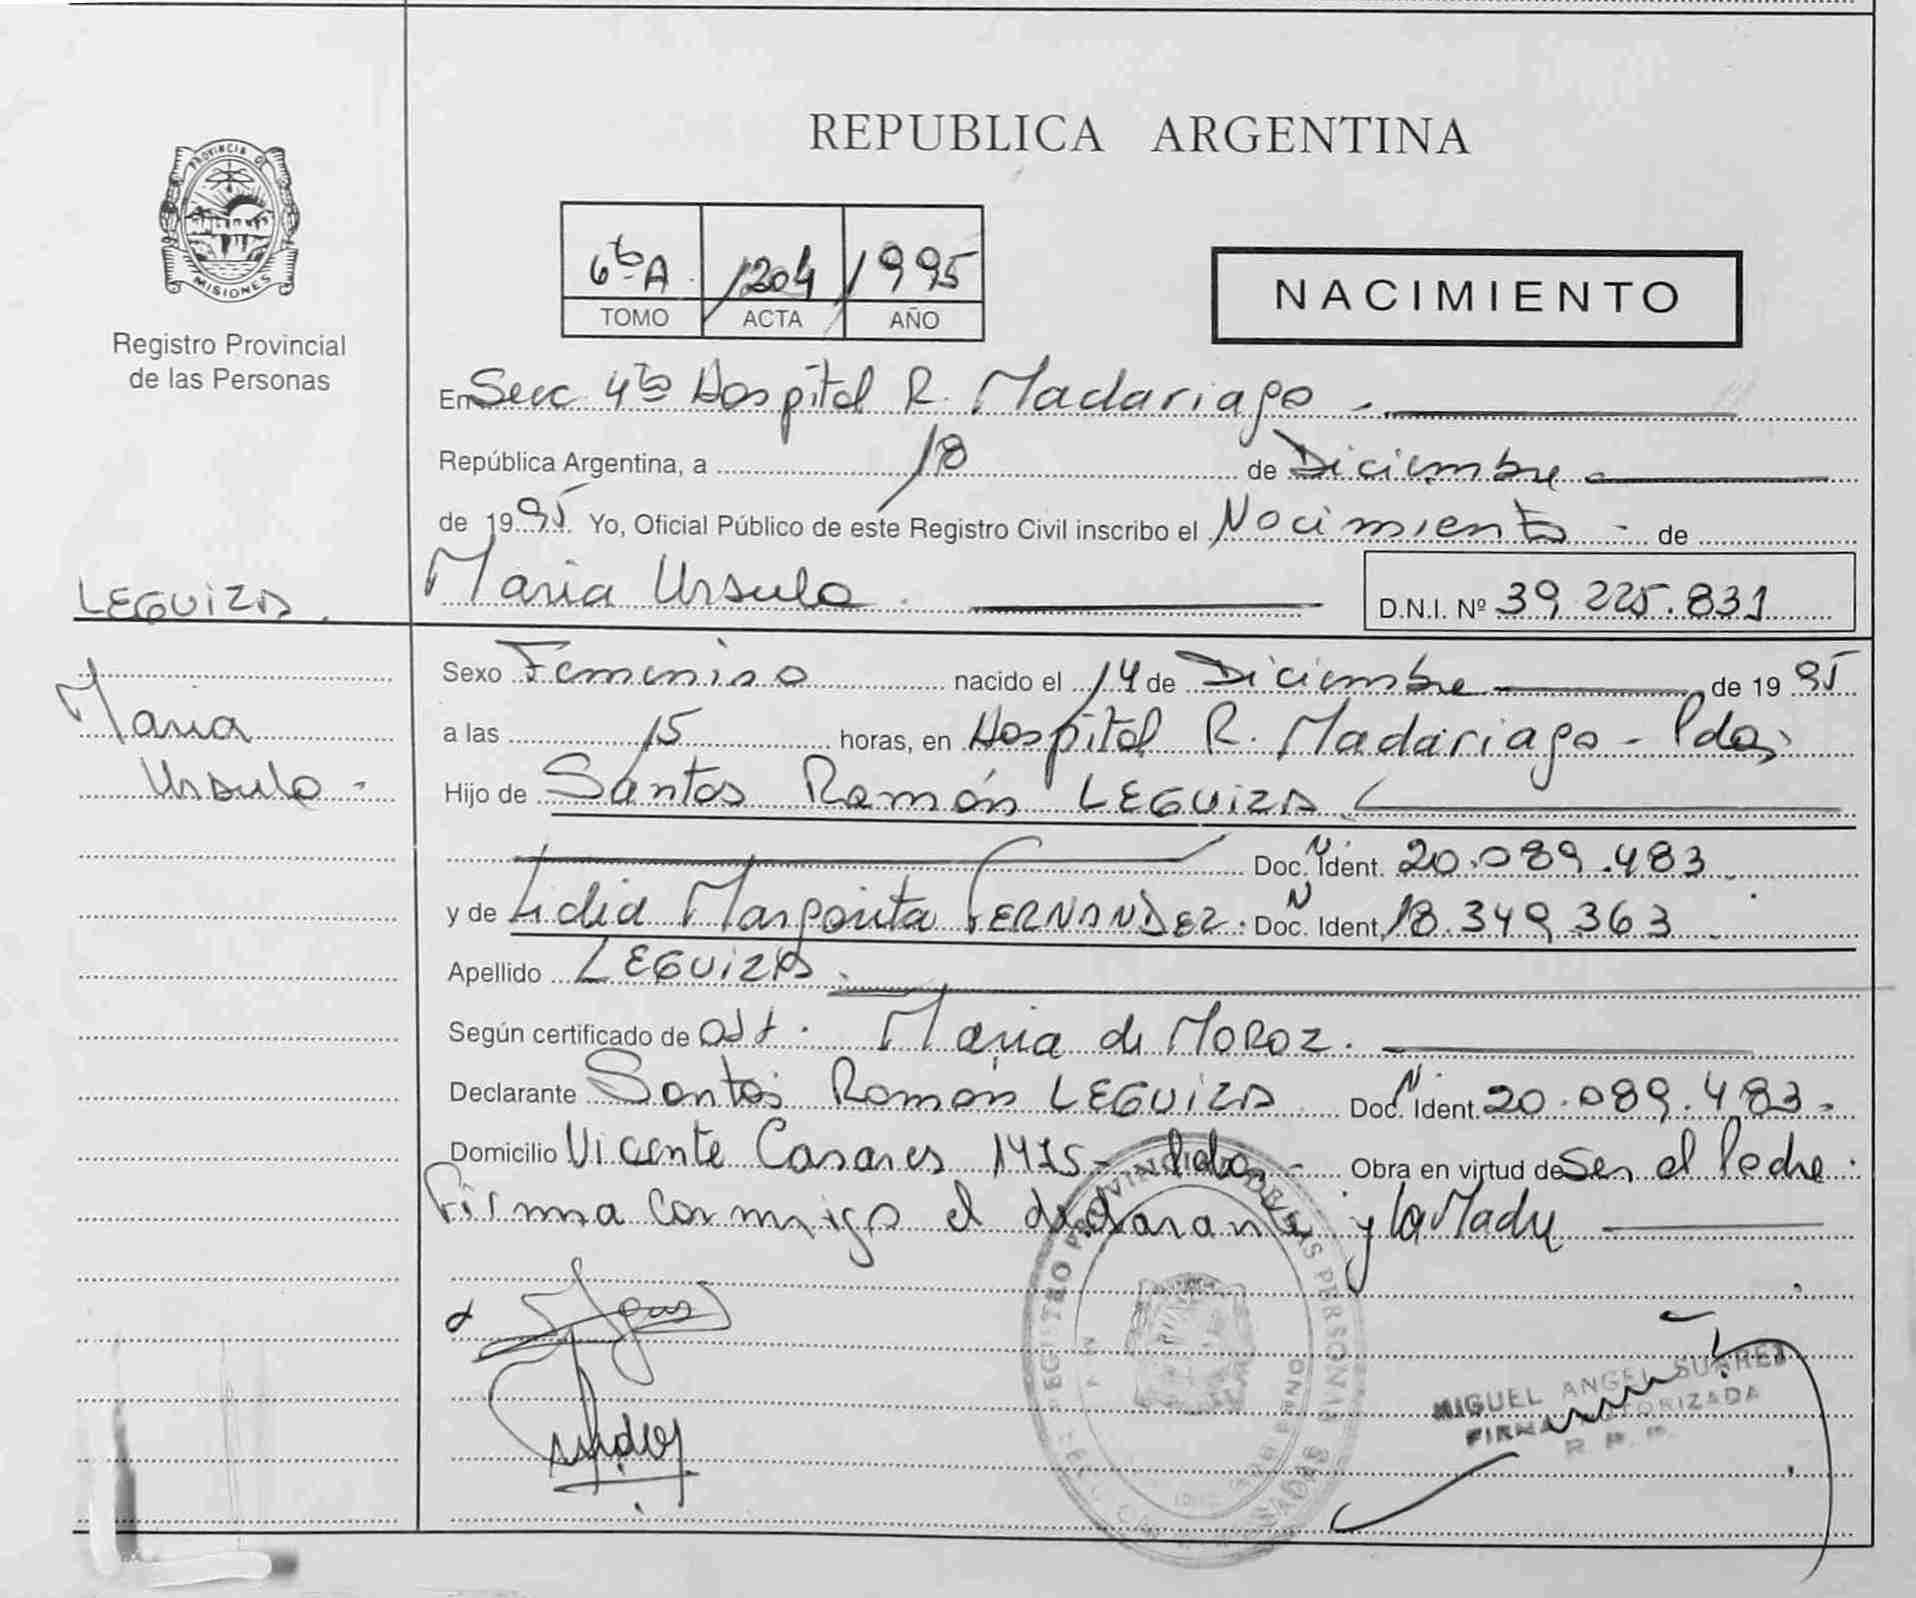 REPUBLICA ARGENTINA
PROVINCIA D
MISIONES
Registro Provincial
de las Personas
6ᵗᵒ A 1204 1995
TOMO ACTA AÑO
NACIMIENTO
En Secc 4ᵗᵃ Hospital R. Madariaga -
República Argentina, a 18 de Diciembre
de 1995 Yo, Oficial Público de este Registro Civil inscribo el Nacimiento - de
Maria Ursula. D.N.I. Nº 39.225.831
LEGUIZA.
Maria
Ursula -
Sexo Femenino nacido el 14 de Diciembre de 1995
a las 15 horas, en Hospital R. Madariaga - Pdas.
Hijo de Santos Ramón LEGUIZA
Doc. N Ident. 20.089.483
y de Lidia Margarita FERNANDEZ. Doc. N Ident. 18.349.363
Apellido LEGUIZA.
Según certificado de Obst. Maria de MOROZ.
Declarante Santos Ramon LEGUIZA Doc. N Ident. 20.089.483.
Domicilio Vicente Casares 1475 - Pdas. - Obra en virtud de Ser el Padre.
Firma conmigo el declarante y la Madre
REGISTRO PROVINCIAL DE LAS PERSONAS
POSADAS
MIGUEL ANGEL SUAREZ
FIRMA AUTORIZADA
R. P. P.